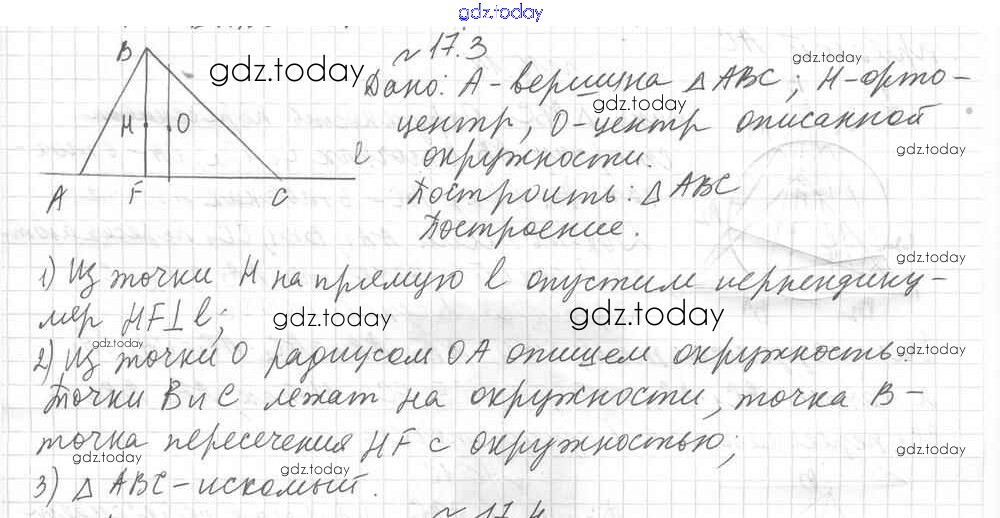 gdz.today
№ 17.3
B
gdz.today
gdz.today
Дано: A-вершина △ABC; H-орто-
gdz.today
H O
центр, O-центр описанной
gdz.today
l
окружности.
A F C
Построить: △ABC
Построение.
gdz.today
1) Из точки H на прямую l опустим перпендику-
ляр HF⊥l;
gdz.today
gdz.today
gdz.today
2) Из точки O радиусом OA опишем окружность.
gdz.today
Точки B и C лежат на окружности, точка B-
точка пересечения HF с окружностью;
gdz.today
gdz.today
gdz.today
3) △ ABC-искомый.
№ 17.4